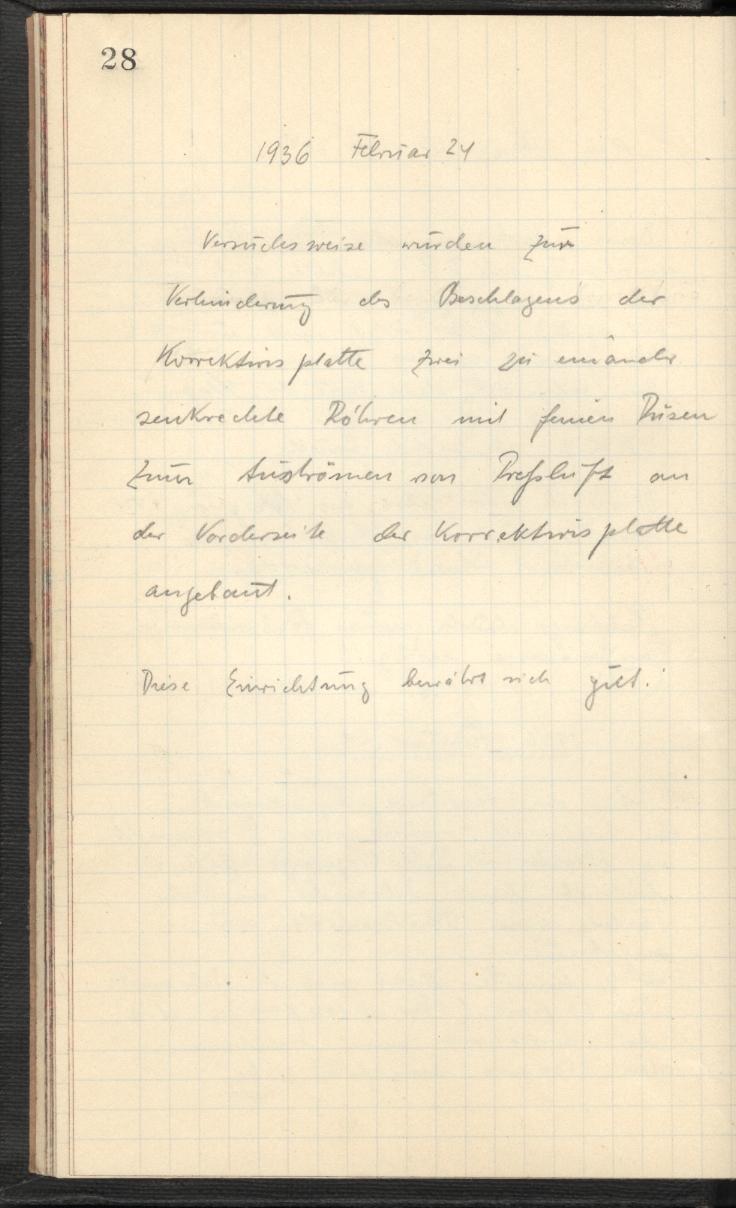 28
1936 Februar 24
Versuchsweise wurden zur
Verhinderung des Beschlagens der
Korrektionsplatte zwei zu einander
senkrechte Röhren mit feinen Düsen
zum Ausströmen von Preßluft an
der Vorderseite der Korrektionsplatte
angebaut.
Diese Einrichtung bewährt sich gut.